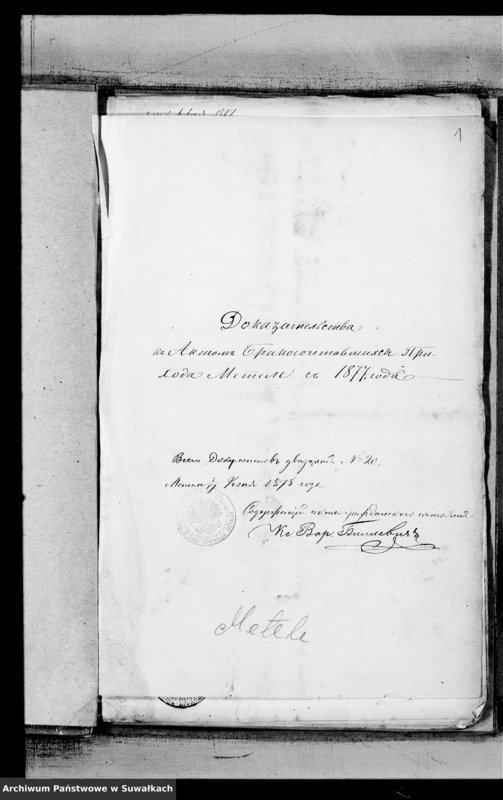 1
1877
Доказательства
къ Актомъ Бракосочетавшихся При-
хода Метеле съ 1877 года
Всехъ Документовъ двадцать № 20.
Метели 1878 года
Содержащій акты гражданского состоянія
Кс. Вар. Билевичъ
Metele
Archiwum Państwowe w Suwałkach